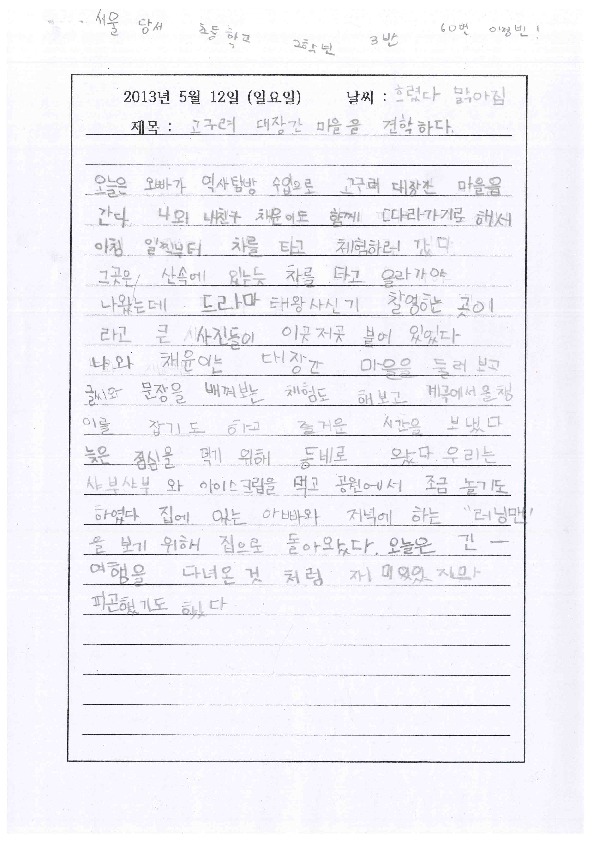 서울 당서 초등학교 2학년 3반 60번 이정빈!
2013년 5월 12일 (일요일) 날씨 : 흐렸다 맑아짐
제목 : 고구려 대장간 마을을 견학하다.
오늘은 오빠가 역사탐방 수업으로 고구려 대장간 마을을
간다. 나와 내친구 채윤이도 함께 따라가기로 해서
아침 일찍부터 차를 타고 체험하러 갔다
그곳은 산속에 있는듯 차를 타고 올라가야
나왔는데 드라마 태왕사신기 촬영하는 곳이
라고 큰 사진들이 이곳저곳 붙어 있었다
나와 채윤이는 대장간 마을을 둘러보고
글씨와 문장을 배껴보는 체험도 해보고 계곡에서 올챙
이를 잡기도 하고 즐거운 시간을 보냈다
늦은 점심을 먹기 위해 동네로 왔다. 우리는
샤부샤부 와 아이스크림을 먹고 공원에서 조금 놀기도
하였다 집에 있는 아빠와 저녁에 하는 "러닝맨"
을 보기 위해 집으로 돌아왔다. 오늘은 긴 ㅡ
여행을 다녀온 것 처럼 재미있었지만
피곤했기도 했다